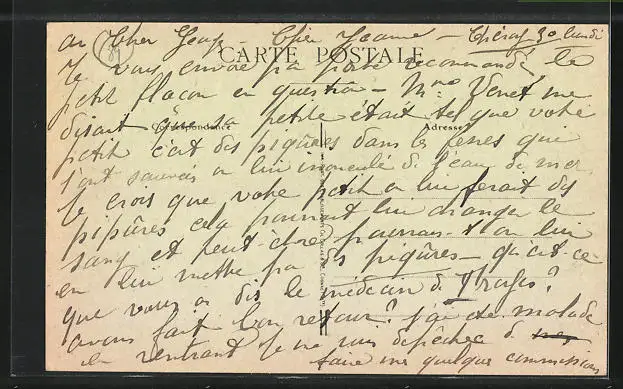 Cher Jean - Chère Jeanne - Chérac 30 lundi
CARTE POSTALE
Je vous envoie par poste recommandé le
petit flacon en question - Mme Venet me
disait que sa petite était tel que votre
Correspondance
Adresse
petit c'est des piqûres dans les fesses qui
l'ont sauvé on lui inoculé de l'eau de mer
Je crois que votre petit on lui ferait des
piqûres cela pourrait lui changer le
sang et peut-être pourrais-t-on lui
en lui mettre par des piqûres - qu'est-ce
que vous a dit le médecin de
avons fait bon retour? j'ai été malade
en rentrant je me suis dépêchée de
faire mes quelques commissions